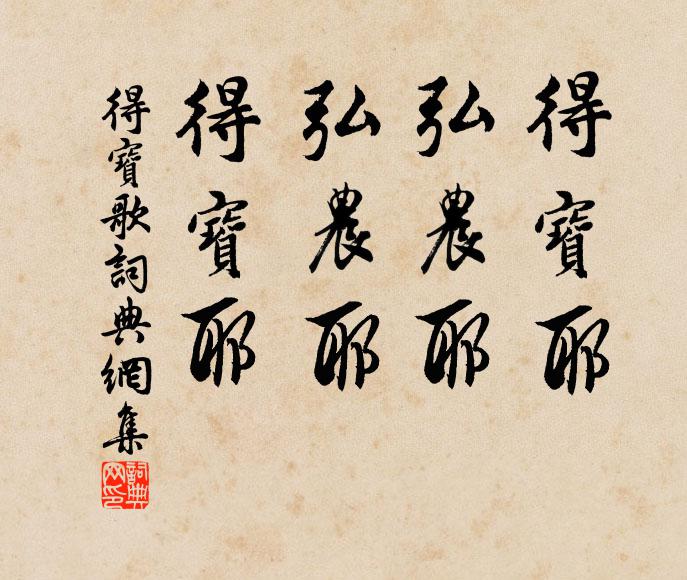 得寶耶
弘農耶
弘農耶
得寶耶
得寶歌詞典網集
詞典网印